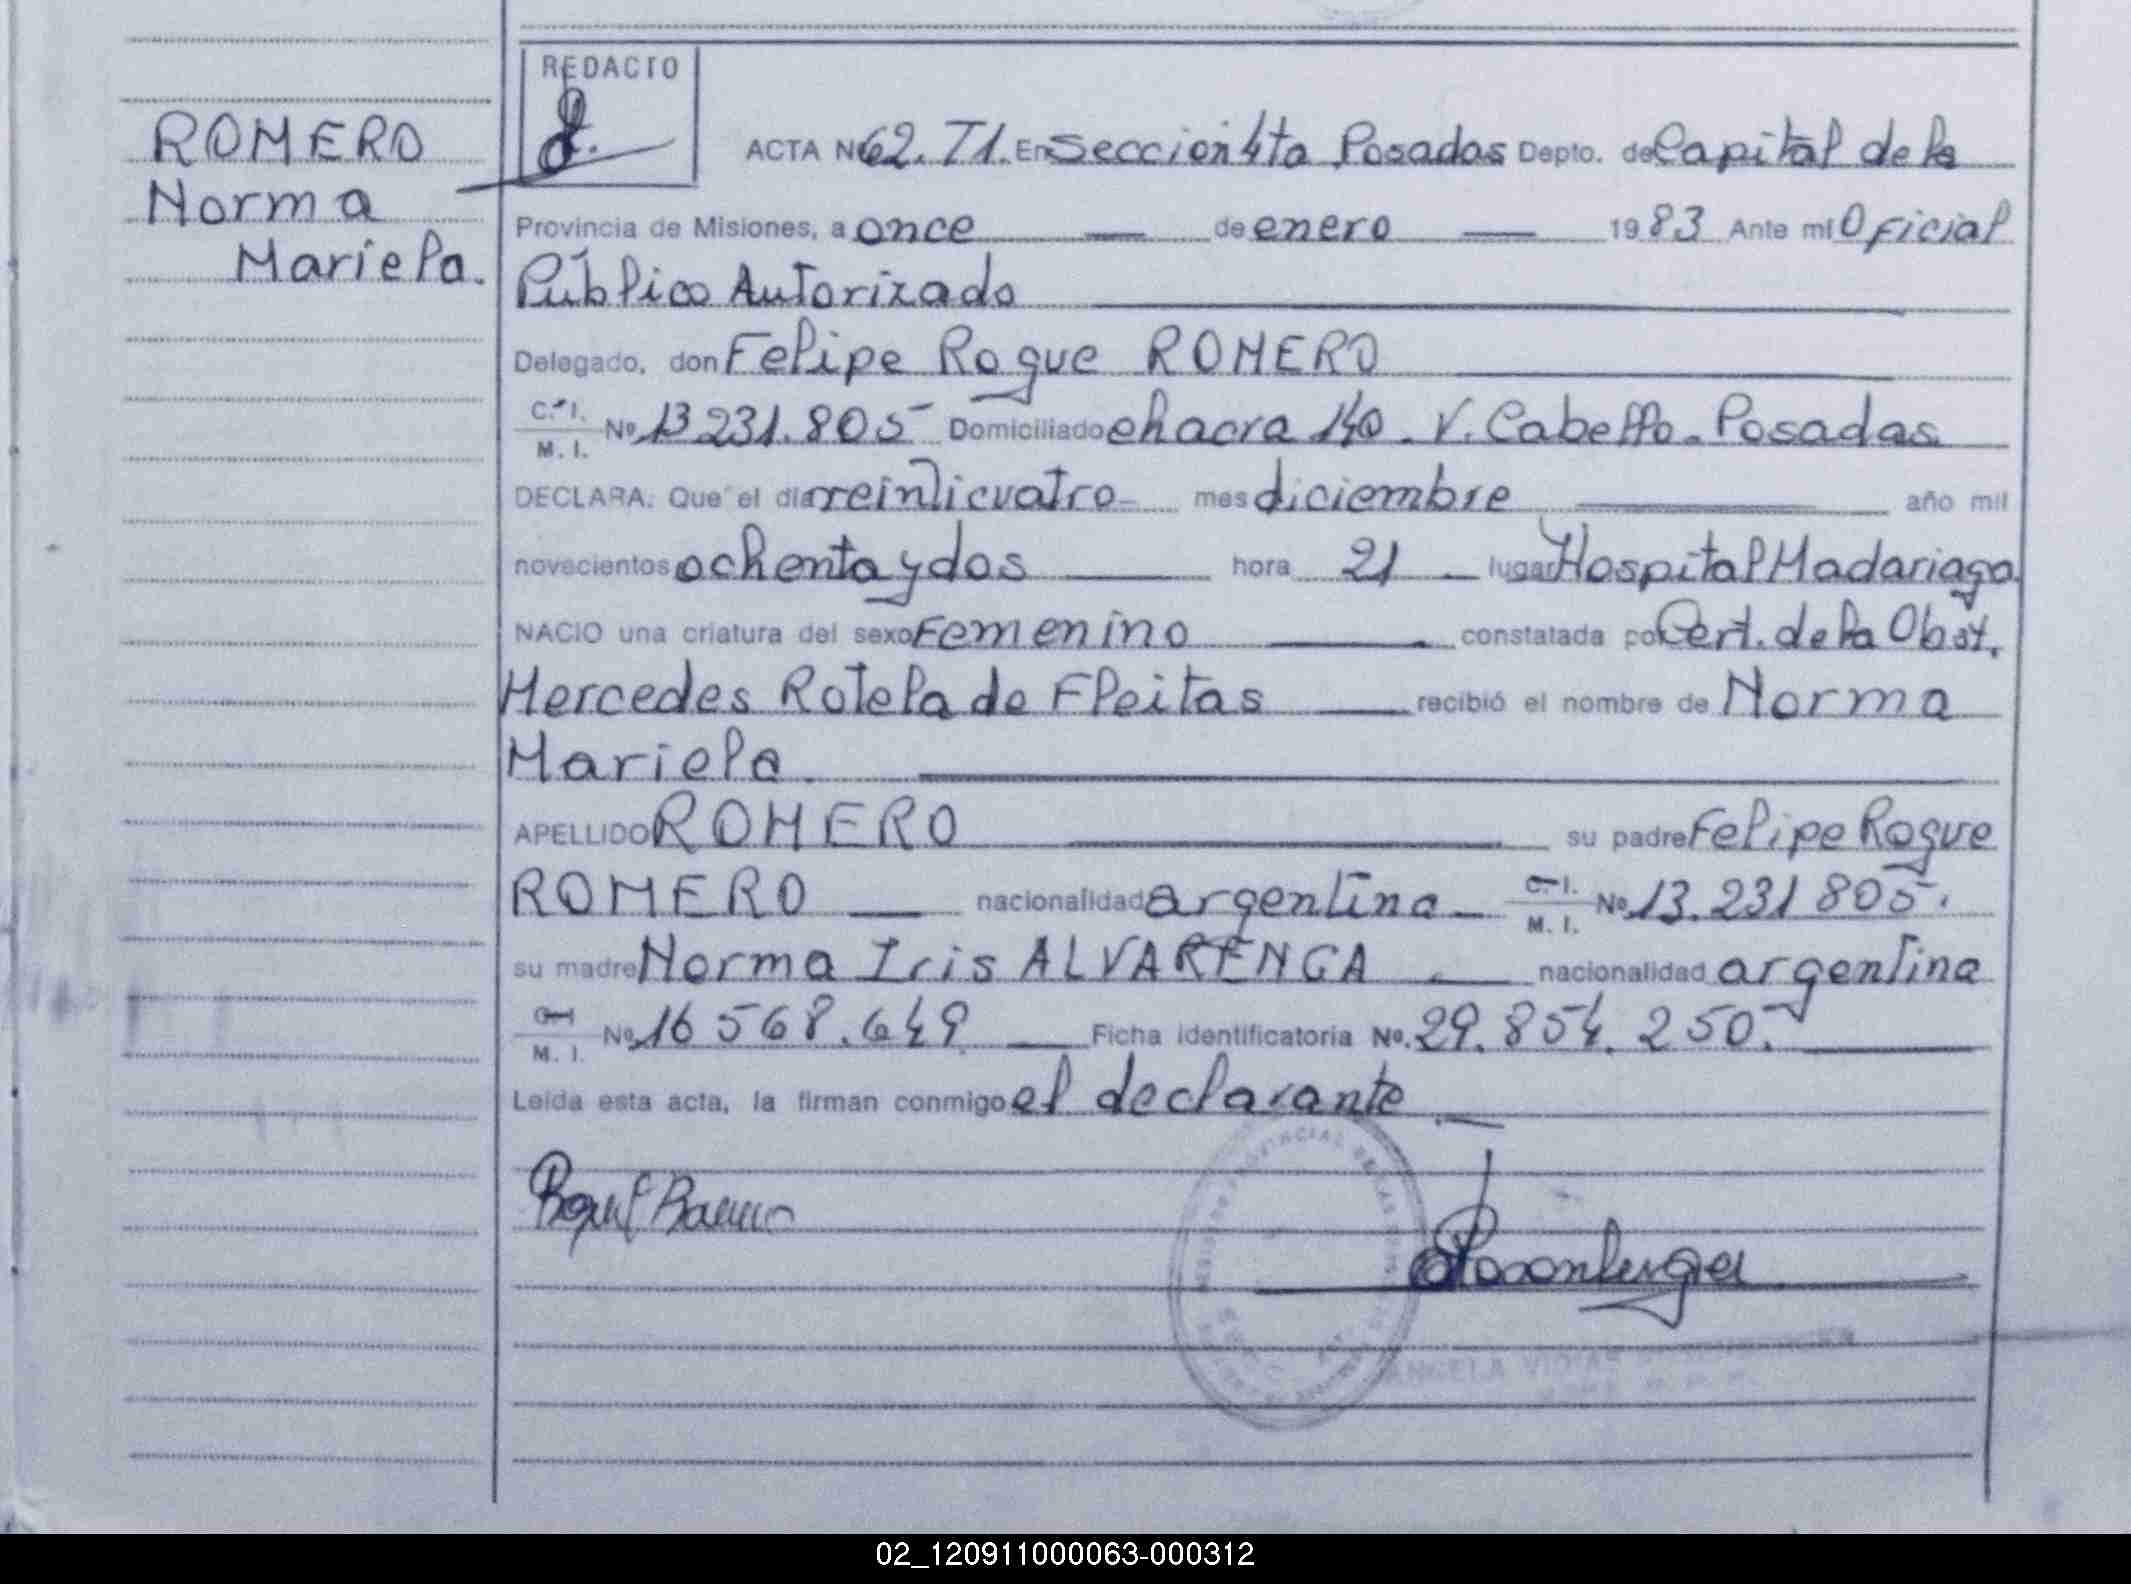 REDACTO
ROMERO
Norma
Mariela.
ACTA Nº 62. T1. En Sección 4ta Posadas Depto. de Capital de la
Provincia de Misiones, a once de enero 1983 Ante mí Oficial
Público Autorizado
Delegado, don Felipe Roque ROMERO
C. I.
M. I. Nº 13 231.805 Domiciliado chacra 140. V. Cabello. Posadas
DECLARA: Que el día veinticuatro mes diciembre año mil
novecientos ochenta y dos hora 21 lugar Hospital Madariaga
NACIO una criatura del sexo Femenino constatada por Cert. de la Obst.
Mercedes Rotela de Fleitas recibió el nombre de Norma
Mariela
APELLIDO ROMERO su padre Felipe Roque
ROMERO nacionalidad argentina C. I.
M. I. Nº 13.231 805.
su madre Norma Iris ALVARENGA nacionalidad argentina
C. I.
M. I. Nº 16 568.649 Ficha identificatoria No. 29.854.250.
Leída esta acta, la firman conmigo el declarante
ANGELA
02_120911000063-000312